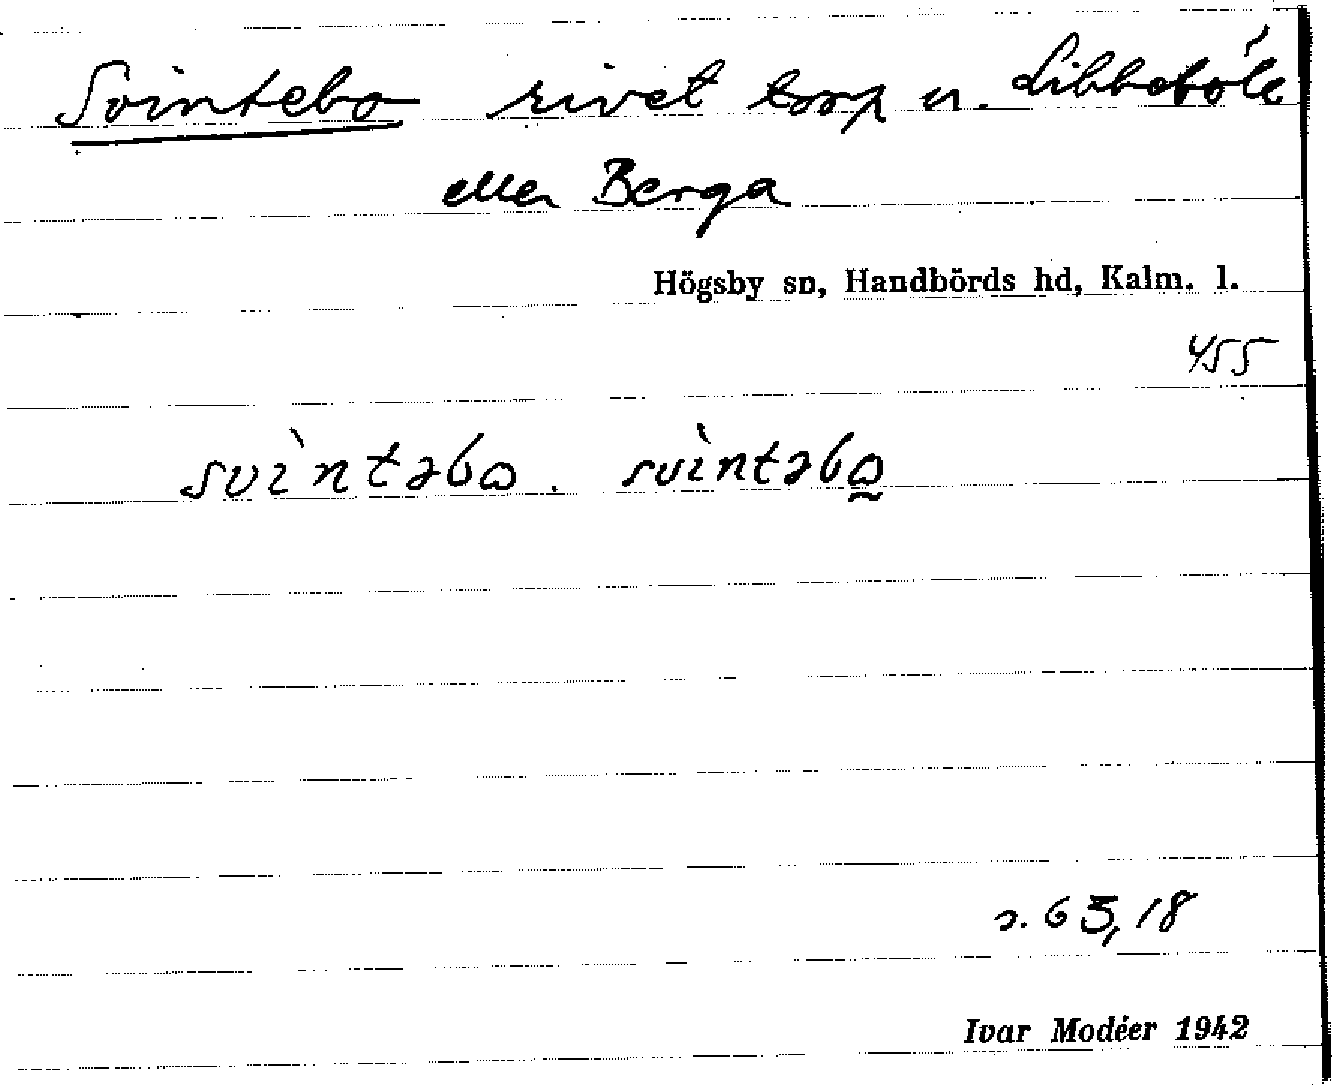 Svintebo rivet torp u. Libbeböle
eller Berga
Högsby sn, Handbörds hd, Kalm. l.
455
svìntəbo. svìntəbo̰
s. 63,18
Ivar Modéer 1942